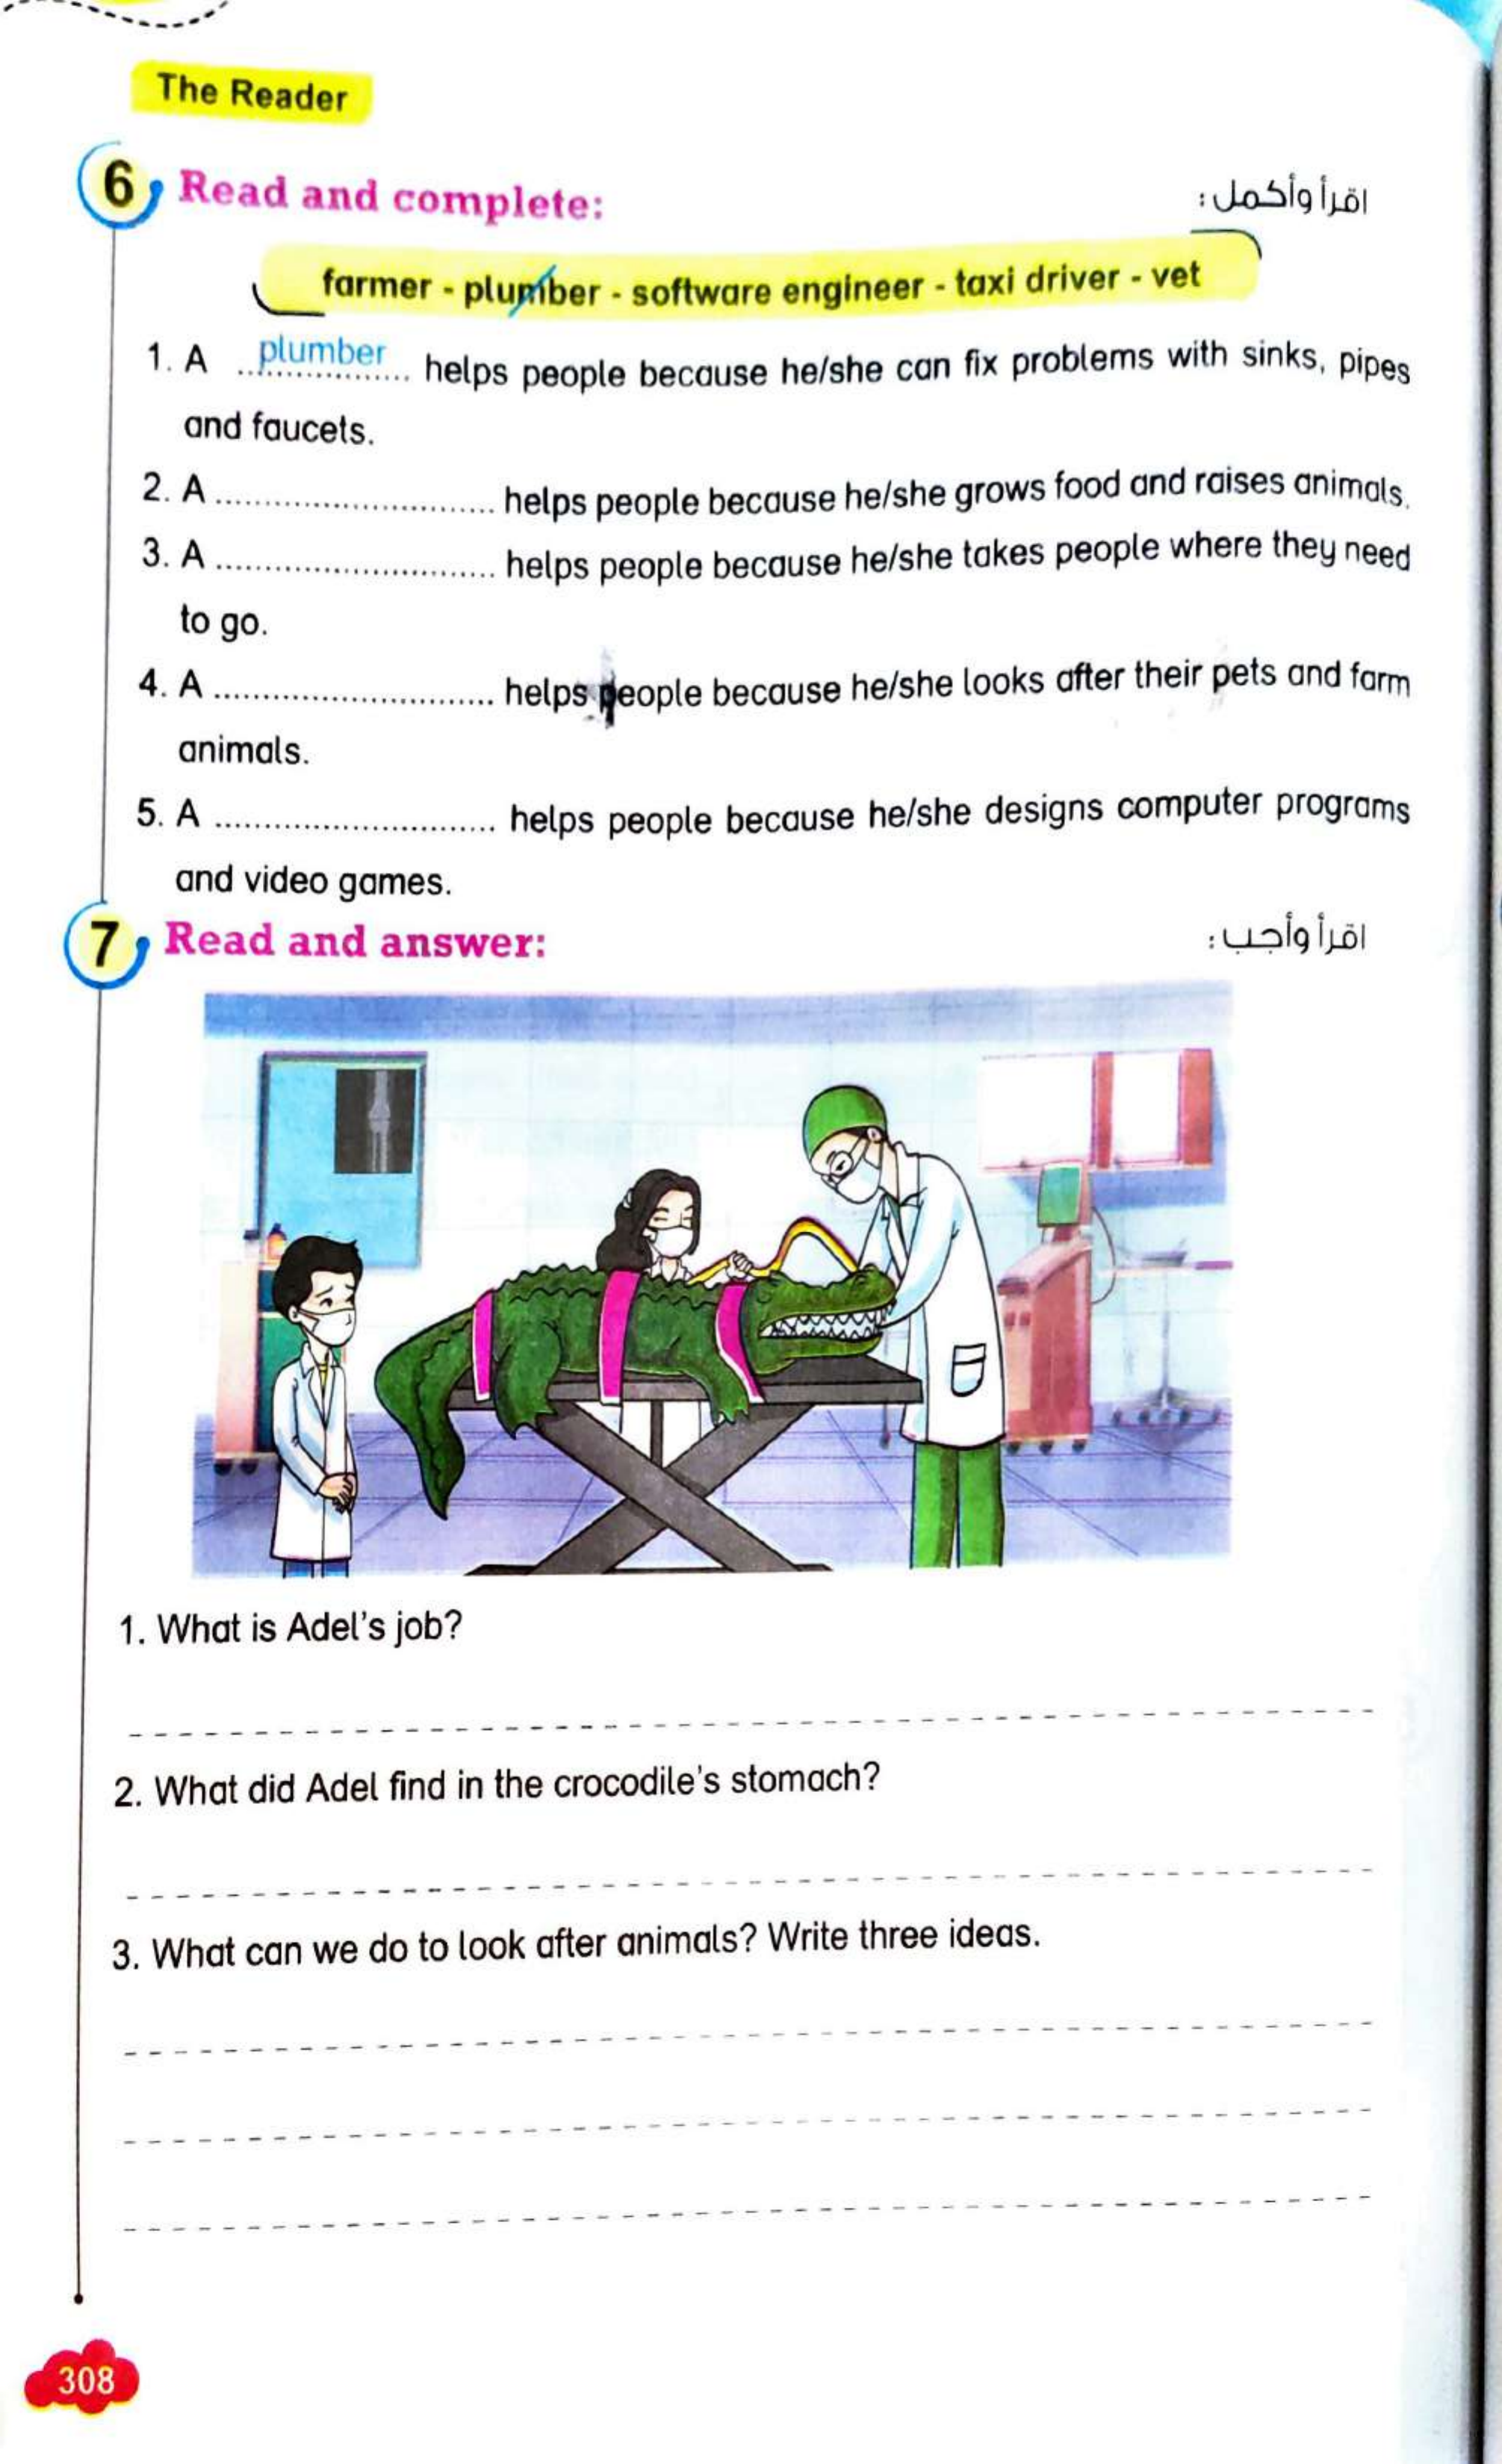 The Reader
6 Read and complete: اقرأ وأكمل :
farmer - plumber - software engineer - taxi driver - vet
1. A ...plumber... helps people because he/she can fix problems with sinks, pipes
and faucets.
2. A ............................ helps people because he/she grows food and raises animals.
3. A ............................ helps people because he/she takes people where they need
to go.
4. A ............................ helps people because he/she looks after their pets and farm
animals.
5. A ............................ helps people because he/she designs computer programs
and video games.
7 Read and answer: اقرأ وأجب :
1. What is Adel's job?
2. What did Adel find in the crocodile's stomach?
3. What can we do to look after animals? Write three ideas.
308